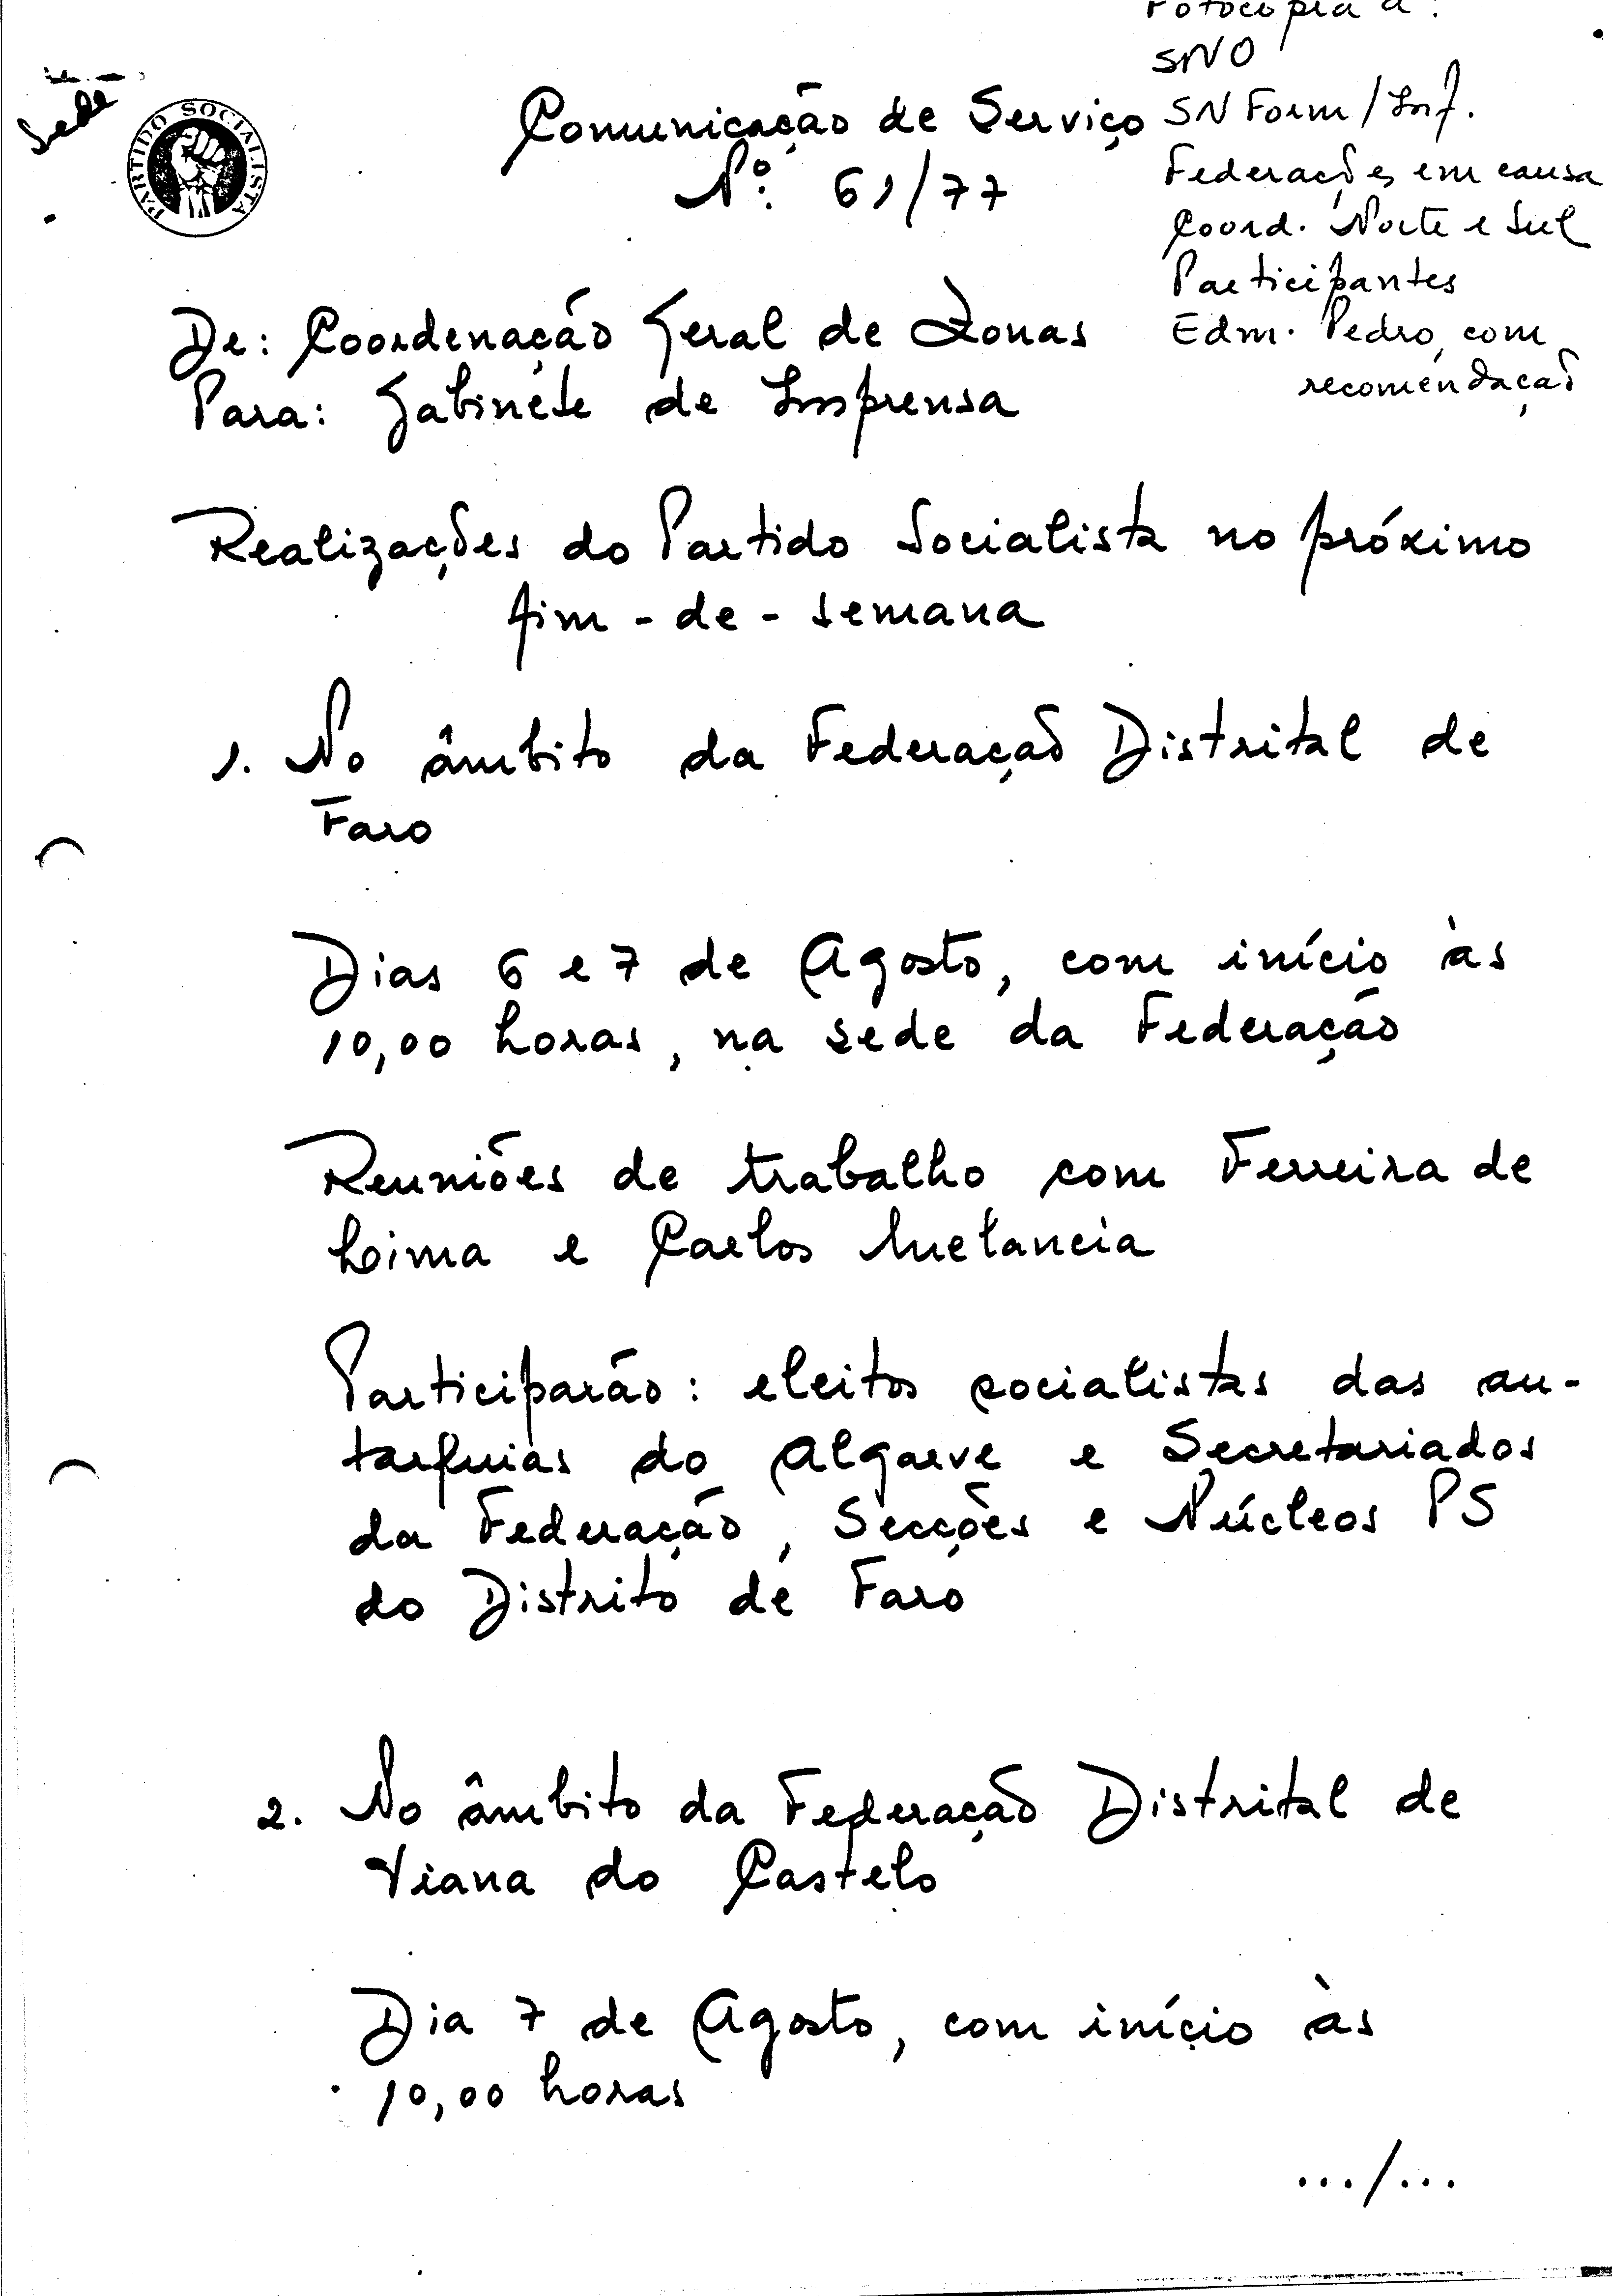 Fotocópia a:
SNO
SN Form/Inf.
Federações em causa
Coord. Norte e Sul
Participantes
Edm. Pedro, com
recomendação
Sede
PARTIDO SOCIALISTA
Comunicação de Serviço
Nº: 61/77
De: Coordenação Geral de Zonas
Para: Gabinete de Imprensa
Realizações do Partido Socialista no próximo
fim-de-semana
1. No âmbito da Federação Distrital de
Faro
Dias 6 e 7 de Agosto, com início às
10,00 horas, na sede da Federação
Reuniões de trabalho com Ferreira de
Lima e Carlos Melancia
Participarão: eleitos socialistas das au-
tarquias do Algarve e Secretariados
da Federação, Secções e Núcleos PS
do Distrito de Faro
2. No âmbito da Federação Distrital de
Viana do Castelo
Dia 7 de Agosto, com início às
10,00 horas
.../...